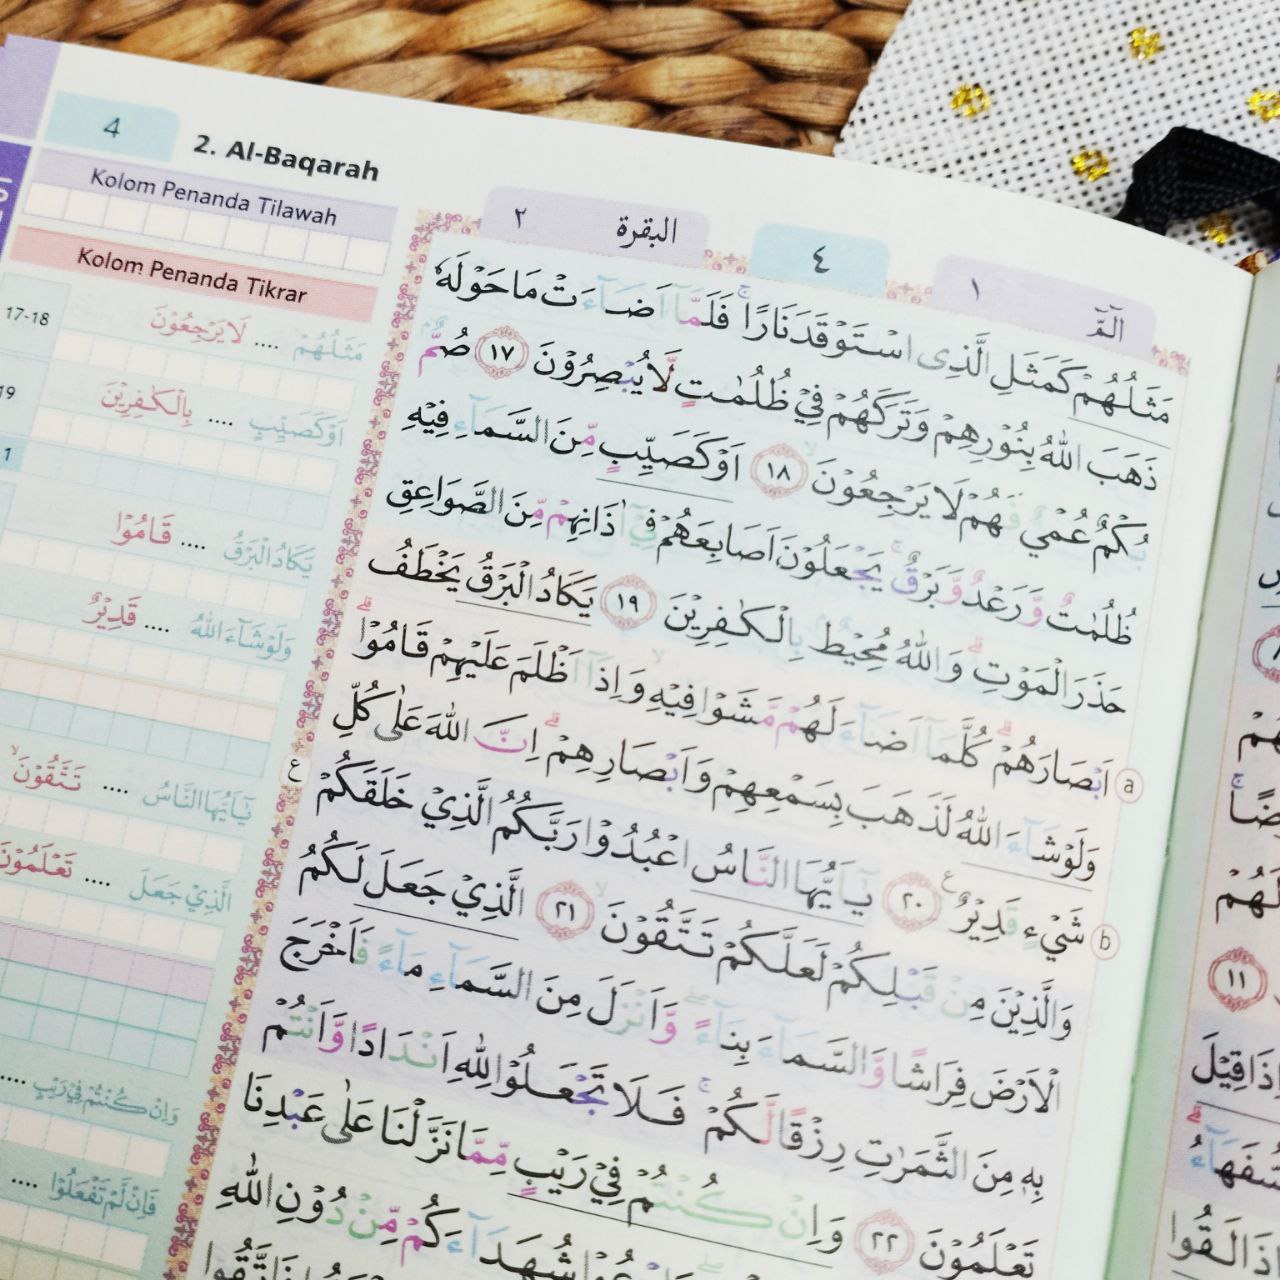 4
2. Al-Baqarah
Kolom Penanda Tilawah
Kolom Penanda Tikrar
17-18
مَثَلُهُمْ .... لَا يَرْجِعُوْنَ
19
اَوْ كَصَيِّبٍ .... بِالْكٰفِرِيْنَ
1
يَكَادُ الْبَرْقُ .... قَامُوْا
وَلَوْ شَاۤءَ اللّٰهُ .... قَدِيْرٌ
يٰٓاَيُّهَا النَّاسُ .... تَتَّقُوْنَۙ
الَّذِيْ جَعَلَ .... تَعْلَمُوْنَ
وَاِنْ كُنْتُمْ فِيْ رَيْبٍ ....
فَاِنْ لَّمْ تَفْعَلُوْا ....
الٓمّٓ ١
٤
البقرة ٢
مَثَلُهُمْ كَمَثَلِ الَّذِى اسْتَوْقَدَ نَارًاۚ فَلَمَّآ اَضَاۤءَتْ مَا حَوْلَهٗ
ذَهَبَ اللّٰهُ بِنُوْرِهِمْ وَتَرَكَهُمْ فِيْ ظُلُمٰتٍ لَّا يُبْصِرُوْنَ ١٧ صُمٌّۢ
بُكْمٌ عُمْيٌ فَهُمْ لَا يَرْجِعُوْنَۙ ١٨ اَوْ كَصَيِّبٍ مِّنَ السَّمَاۤءِ فِيْهِ
ظُلُمٰتٌ وَّرَعْدٌ وَّبَرْقٌۚ يَجْعَلُوْنَ اَصَابِعَهُمْ فِيْٓ اٰذَانِهِمْ مِّنَ الصَّوَاعِقِ
حَذَرَ الْمَوْتِۗ وَاللّٰهُ مُحِيْطٌۢ بِالْكٰفِرِيْنَ ١٩ يَكَادُ الْبَرْقُ يَخْطَفُ
اَبْصَارَهُمْۗ كُلَّمَآ اَضَاۤءَ لَهُمْ مَّشَوْا فِيْهِۙ وَاِذَآ اَظْلَمَ عَلَيْهِمْ قَامُوْاۗ
a
وَلَوْ شَاۤءَ اللّٰهُ لَذَهَبَ بِسَمْعِهِمْ وَاَبْصَارِهِمْۗ اِنَّ اللّٰهَ عَلٰى كُلِّ
شَيْءٍ قَدِيْرٌ ࣖ ٢٠ يٰٓاَيُّهَا النَّاسُ اعْبُدُوْا رَبَّكُمُ الَّذِيْ خَلَقَكُمْ
ع
b
وَالَّذِيْنَ مِنْ قَبْلِكُمْ لَعَلَّكُمْ تَتَّقُوْنَۙ ٢١ الَّذِيْ جَعَلَ لَكُمُ
الْاَرْضَ فِرَاشًا وَّالسَّمَاۤءَ بِنَاۤءًۖ وَّاَنْزَلَ مِنَ السَّمَاۤءِ مَاۤءً فَاَخْرَجَ
بِهٖ مِنَ الثَّمَرٰتِ رِزْقًا لَّكُمْۚ فَلَا تَجْعَلُوْا لِلّٰهِ اَنْدَادًا وَّاَنْتُمْ
تَعْلَمُوْنَ ٢٢ وَاِنْ كُنْتُمْ فِيْ رَيْبٍ مِّمَّا نَزَّلْنَا عَلٰى عَبْدِنَا
شُهَدَاۤءَكُمْ مِّنْ دُوْنِ اللّٰهِ
١١